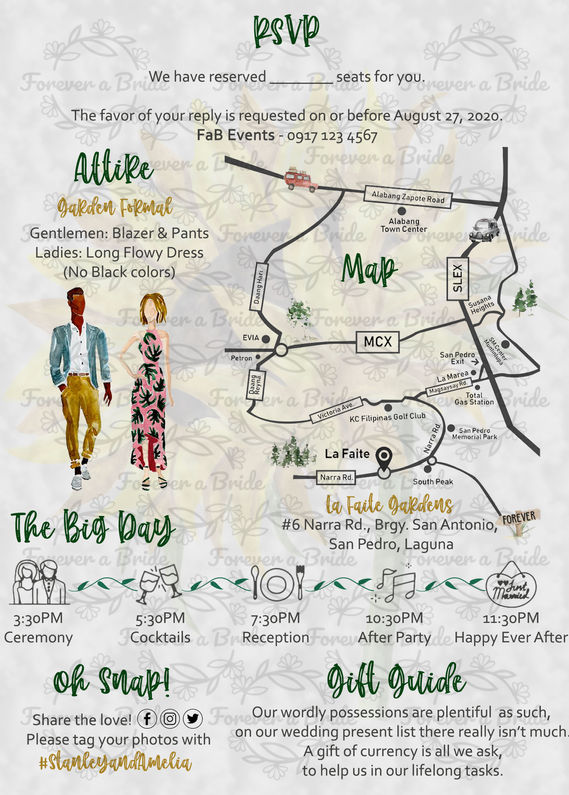 RSVP
We have reserved ________ seats for you.
The favor of your reply is requested on or before August 27, 2020.
FaB Events - 0917 123 4567
Attire
Garden Formal
Gentlemen: Blazer & Pants
Ladies: Long Flowy Dress
(No Black colors)
Map
Alabang Zapote Road
Alabang
Town Center
SLEX
Daang Hari
Susana
Heights
EVIA
MCX
SM Center
Muntinlupa
Petron
San Pedro
Exit
Daang
Reyna
La Marea
Magsaysay Rd.
Total
Gas Station
Victoria Ave.
KC Filipinas Golf Club
Narra Rd
San Pedro
Memorial Park
La Faite
Narra Rd.
South Peak
FOREVER
La Faite Gardens
#6 Narra Rd., Brgy. San Antonio,
San Pedro, Laguna
The Big Day
Just
Married
3:30PM
Ceremony
5:30PM
Cocktails
7:30PM
Reception
10:30PM
After Party
11:30PM
Happy Ever After
Oh Snap!
Share the love!
Please tag your photos with
#StanleyandAmelia
Gift Guide
Our wordly possessions are plentiful as such,
on our wedding present list there really isn't much.
A gift of currency is all we ask,
to help us in our lifelong tasks.
Forever a Bride